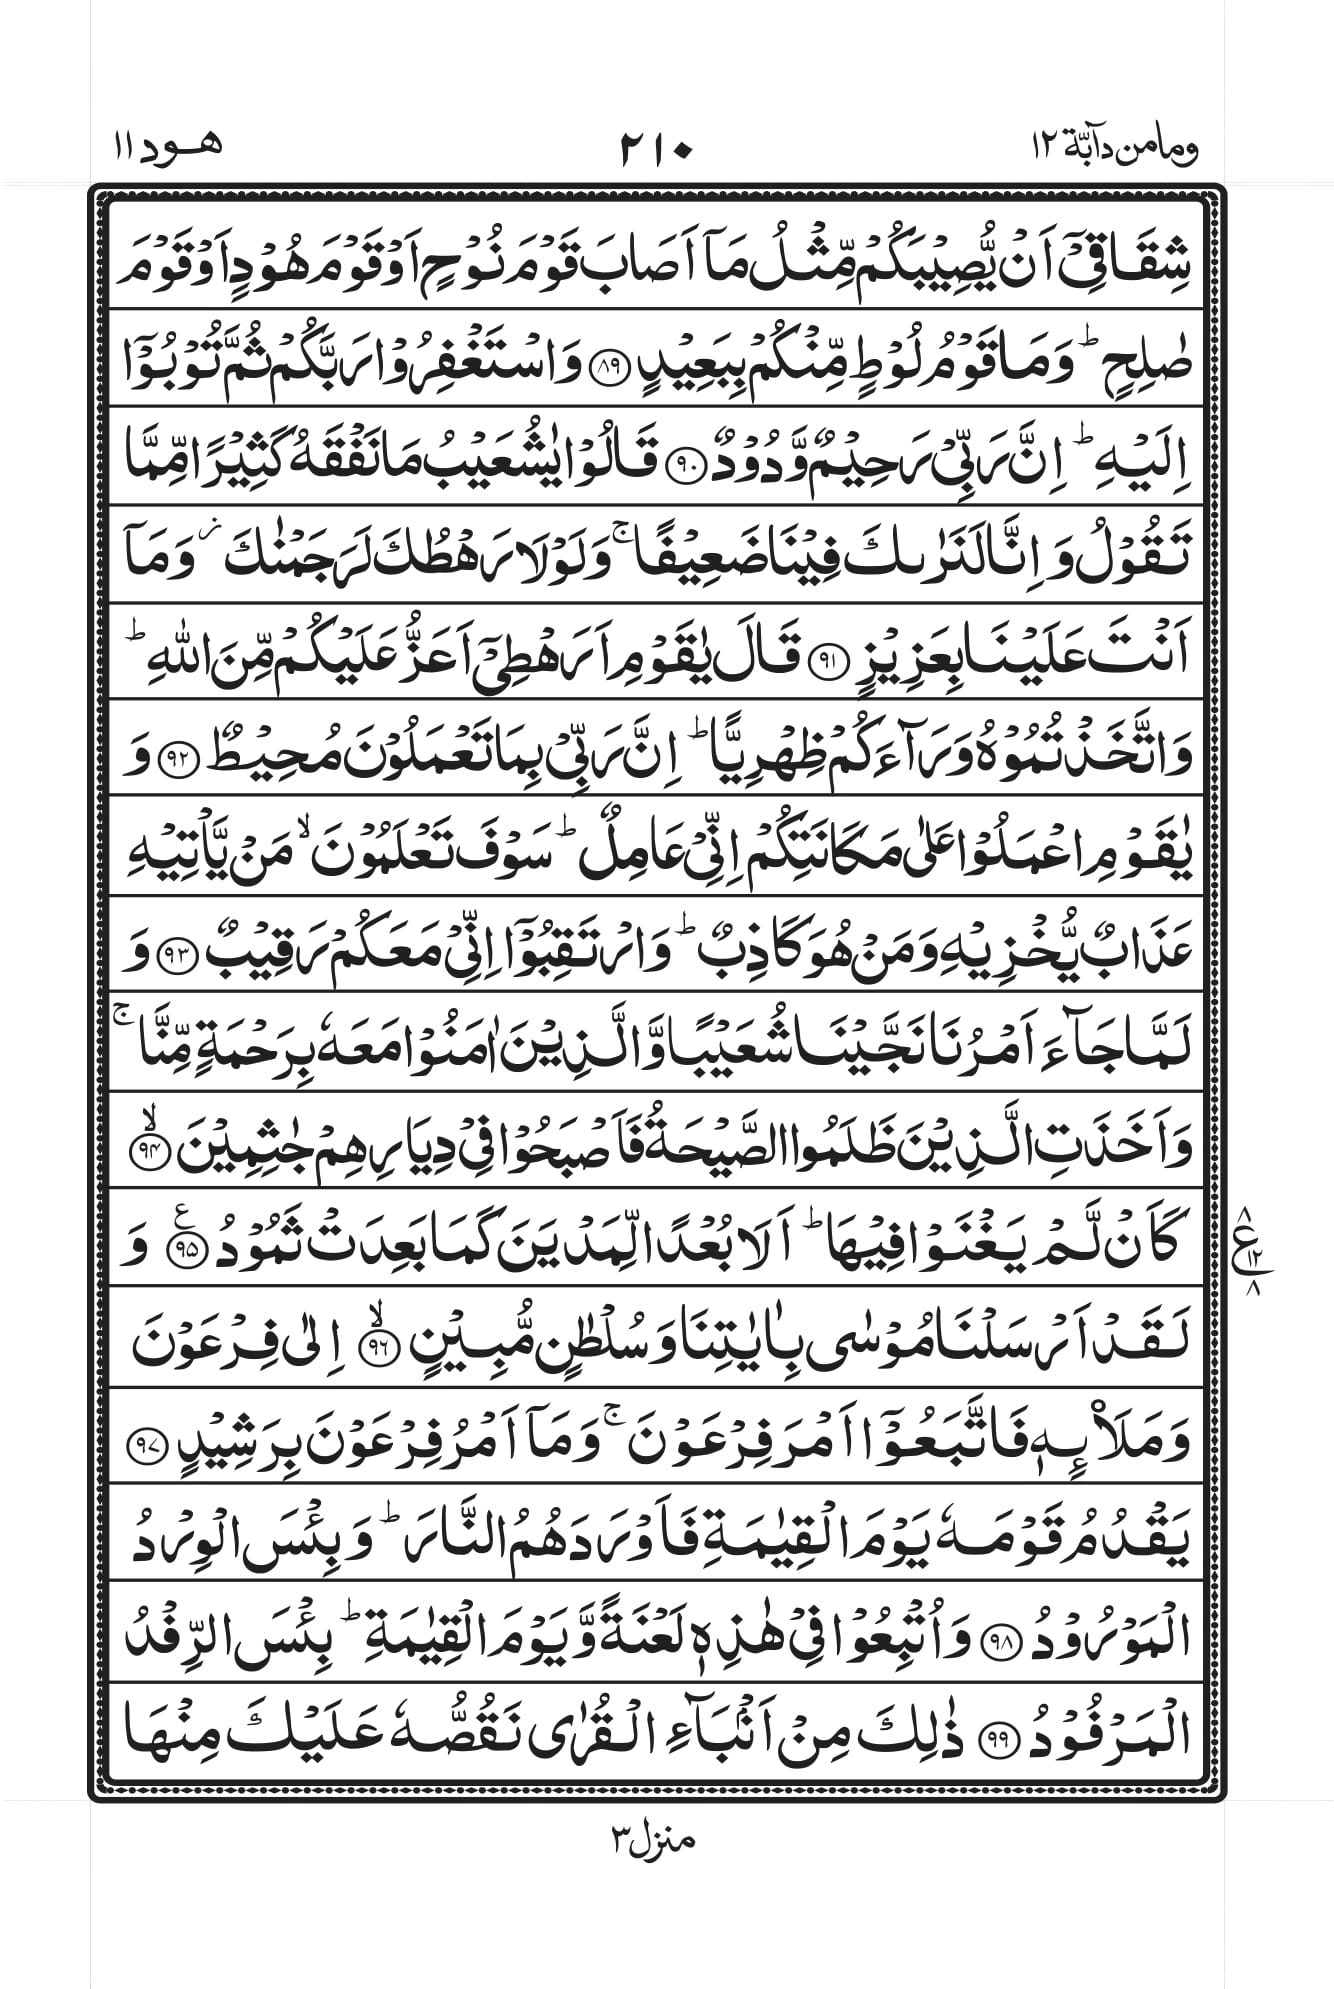 وما من دآبّة ١٢
٢١٠
هود ١١
شِقَاقِيْۤ اَنْ يُّصِيْبَكُمْ مِّثْلُ مَاۤ اَصَابَ قَوْمَ نُوْحٍ اَوْ قَوْمَ هُوْدٍ اَوْ قَوْمَ
صٰلِحٍ ؕ وَمَا قَوْمُ لُوْطٍ مِّنْكُمْ بِبَعِيْدٍ ﴿٨٩﴾ وَاسْتَغْفِرُوْا رَبَّكُمْ ثُمَّ تُوْبُوْۤا
اِلَيْهِ ؕ اِنَّ رَبِّيْ رَحِيْمٌ وَّدُوْدٌ ﴿٩٠﴾ قَالُوْا يٰشُعَيْبُ مَا نَفْقَهُ كَثِيْرًا مِّمَّا
تَقُوْلُ وَاِنَّا لَنَرٰىكَ فِيْنَا ضَعِيْفًا ۚ وَلَوْلَا رَهْطُكَ لَرَجَمْنٰكَ ؗ وَمَاۤ
اَنْتَ عَلَيْنَا بِعَزِيْزٍ ﴿٩١﴾ قَالَ يٰقَوْمِ اَرَهْطِيْۤ اَعَزُّ عَلَيْكُمْ مِّنَ اللّٰهِ ؕ
وَاتَّخَذْتُمُوْهُ وَرَآءَكُمْ ظِهْرِيًّا ؕ اِنَّ رَبِّيْ بِمَا تَعْمَلُوْنَ مُحِيْطٌ ﴿٩٢﴾ وَ
يٰقَوْمِ اعْمَلُوْا عَلٰى مَكَانَتِكُمْ اِنِّيْ عَامِلٌ ؕ سَوْفَ تَعْلَمُوْنَ ۙ مَنْ يَّاْتِيْهِ
عَذَابٌ يُّخْزِيْهِ وَمَنْ هُوَ كَاذِبٌ ؕ وَارْتَقِبُوْۤا اِنِّيْ مَعَكُمْ رَقِيْبٌ ﴿٩٣﴾ وَ
لَمَّا جَآءَ اَمْرُنَا نَجَّيْنَا شُعَيْبًا وَّالَّذِيْنَ اٰمَنُوْا مَعَهٗ بِرَحْمَةٍ مِّنَّا ۚ
وَاَخَذَتِ الَّذِيْنَ ظَلَمُوا الصَّيْحَةُ فَاَصْبَحُوْا فِيْ دِيَارِهِمْ جٰثِمِيْنَ ۙ﴿٩٤﴾
كَاَنْ لَّمْ يَغْنَوْا فِيْهَا ؕ اَلَا بُعْدًا لِّمَدْيَنَ كَمَا بَعِدَتْ ثَمُوْدُ ع﴿٩٥﴾ وَ
٨ ع ١٢ ٨
لَقَدْ اَرْسَلْنَا مُوْسٰى بِاٰيٰتِنَا وَسُلْطٰنٍ مُّبِيْنٍ ۙ﴿٩٦﴾ اِلٰى فِرْعَوْنَ
وَمَلَا۟ئِهٖ فَاتَّبَعُوْۤا اَمْرَ فِرْعَوْنَ ۚ وَمَاۤ اَمْرُ فِرْعَوْنَ بِرَشِيْدٍ ﴿٩٧﴾
يَقْدُمُ قَوْمَهٗ يَوْمَ الْقِيٰمَةِ فَاَوْرَدَهُمُ النَّارَ ؕ وَبِئْسَ الْوِرْدُ
الْمَوْرُوْدُ ﴿٩٨﴾ وَاُتْبِعُوْا فِيْ هٰذِهٖ لَعْنَةً وَّيَوْمَ الْقِيٰمَةِ ؕ بِئْسَ الرِّفْدُ
الْمَرْفُوْدُ ﴿٩٩﴾ ذٰلِكَ مِنْ اَنْۢبَآءِ الْقُرٰى نَقُصُّهٗ عَلَيْكَ مِنْهَا
منزل ٣